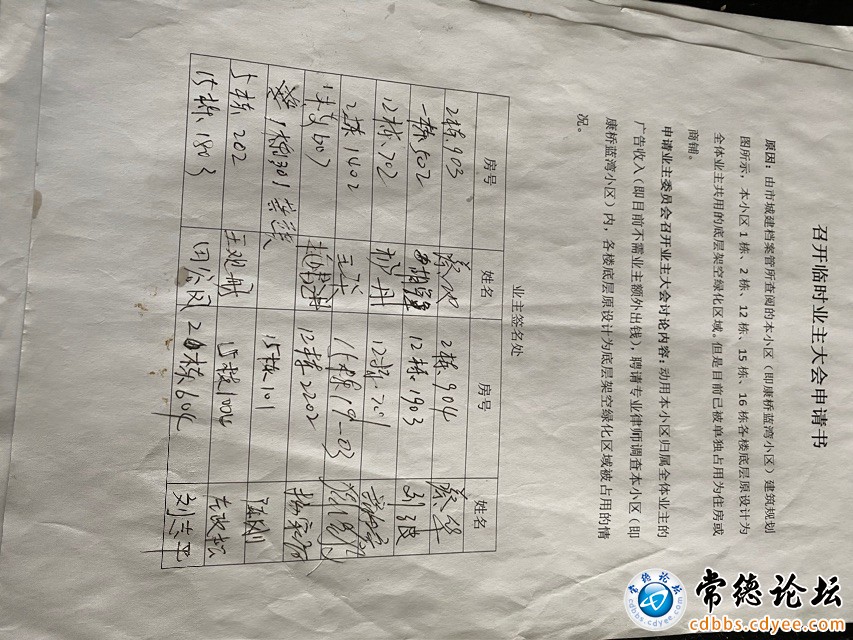 召开临时业主大会申请书
原因：由市城建档案管所查阅的本小区（即康桥蓝湾小区）建筑规划
图所示，本小区1栋、2栋、12栋、15栋、16栋各楼底层原设计为
全体业主共用的底层架空绿化区域。但是目前已被单独占用为住房或
商铺。
申请业主委员会召开业主大会讨论内容：动用本小区归属全体业主的
广告收入（即目前不需业主额外出钱），聘请专业律师调查本小区（即
康桥蓝湾小区）内，各楼底层原设计为底层架空绿化区域被占用的情
况。
业主签名处
房号 姓名 房号 姓名
2栋.903 2栋904 蔡华
一栋502 12栋.1903 刘波
12栋.702 12栋.701
2栋1402 15栋19-03
607 12栋2202
1栋301 15栋101
5栋202 15栋1004
15栋.1803 田公凤 604 刘志平
常德论坛
cdbbs.cdyee.com